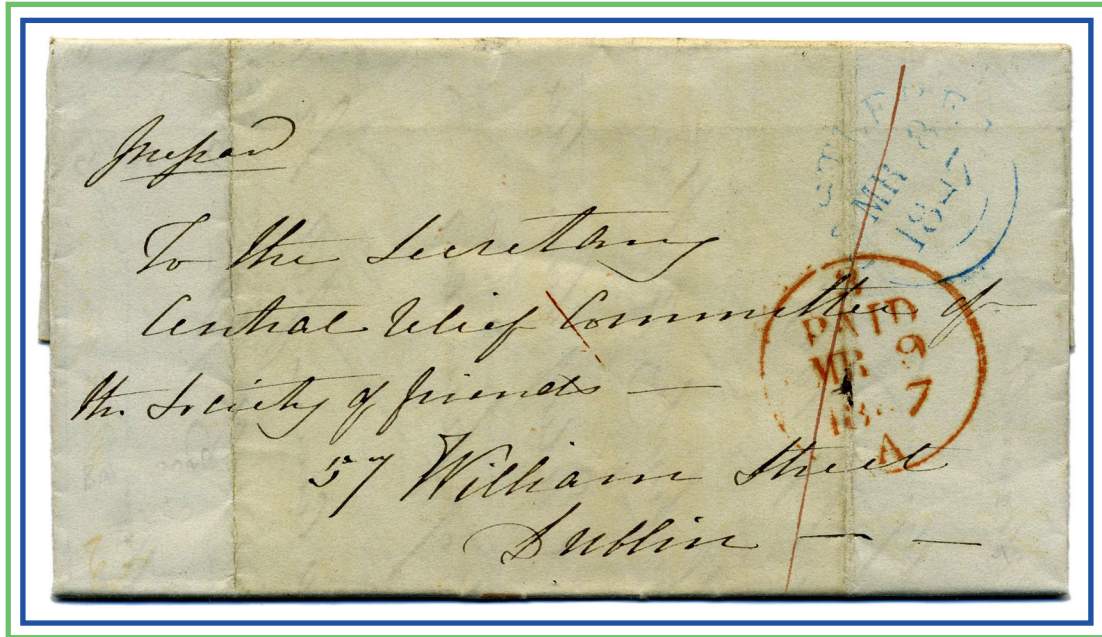 Prepaid
To the Secretary
Central Relief Committee of
the Society of friends —
57 William Street
Dublin — —
MR 8
1847
PAID
MR 9
1847
A